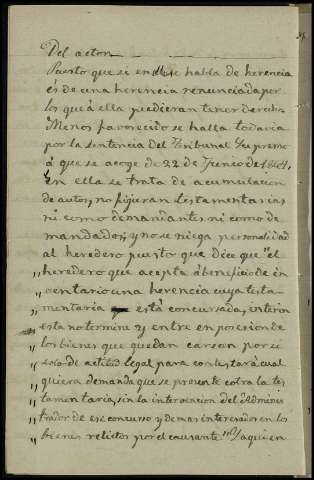 Del actor
Puesto que si en ellas se habla de herencia
es de una herencia renunciada por
los que á ella pudieran tener derecho.
Menos favorecido se halla todavia
por la sentencia del Tribunal Supremo
á que se acoge de 22 de Junio de
En ella se trata de acumulacion
de autos, no figuran testamentarias
ni como demandantes ni como de
mandados, y no se niega personalidad
al heredero puesto que dice que "el
" heredero que acepta á beneficio de in
" ventario una herencia cuya testa-
" mentaria está concursada, interin
" esta no termine y entre en posesion de
" los bienes que quedan carece por sí
" solo de actitud legal para contestar á cual
" quiera demanda que se presente cotra la tes
" tamentaria, sin la intervencion del Adminis
" trador de ese concurso y demas interesados en los
" bienes relictos por el causante" Y aqui en